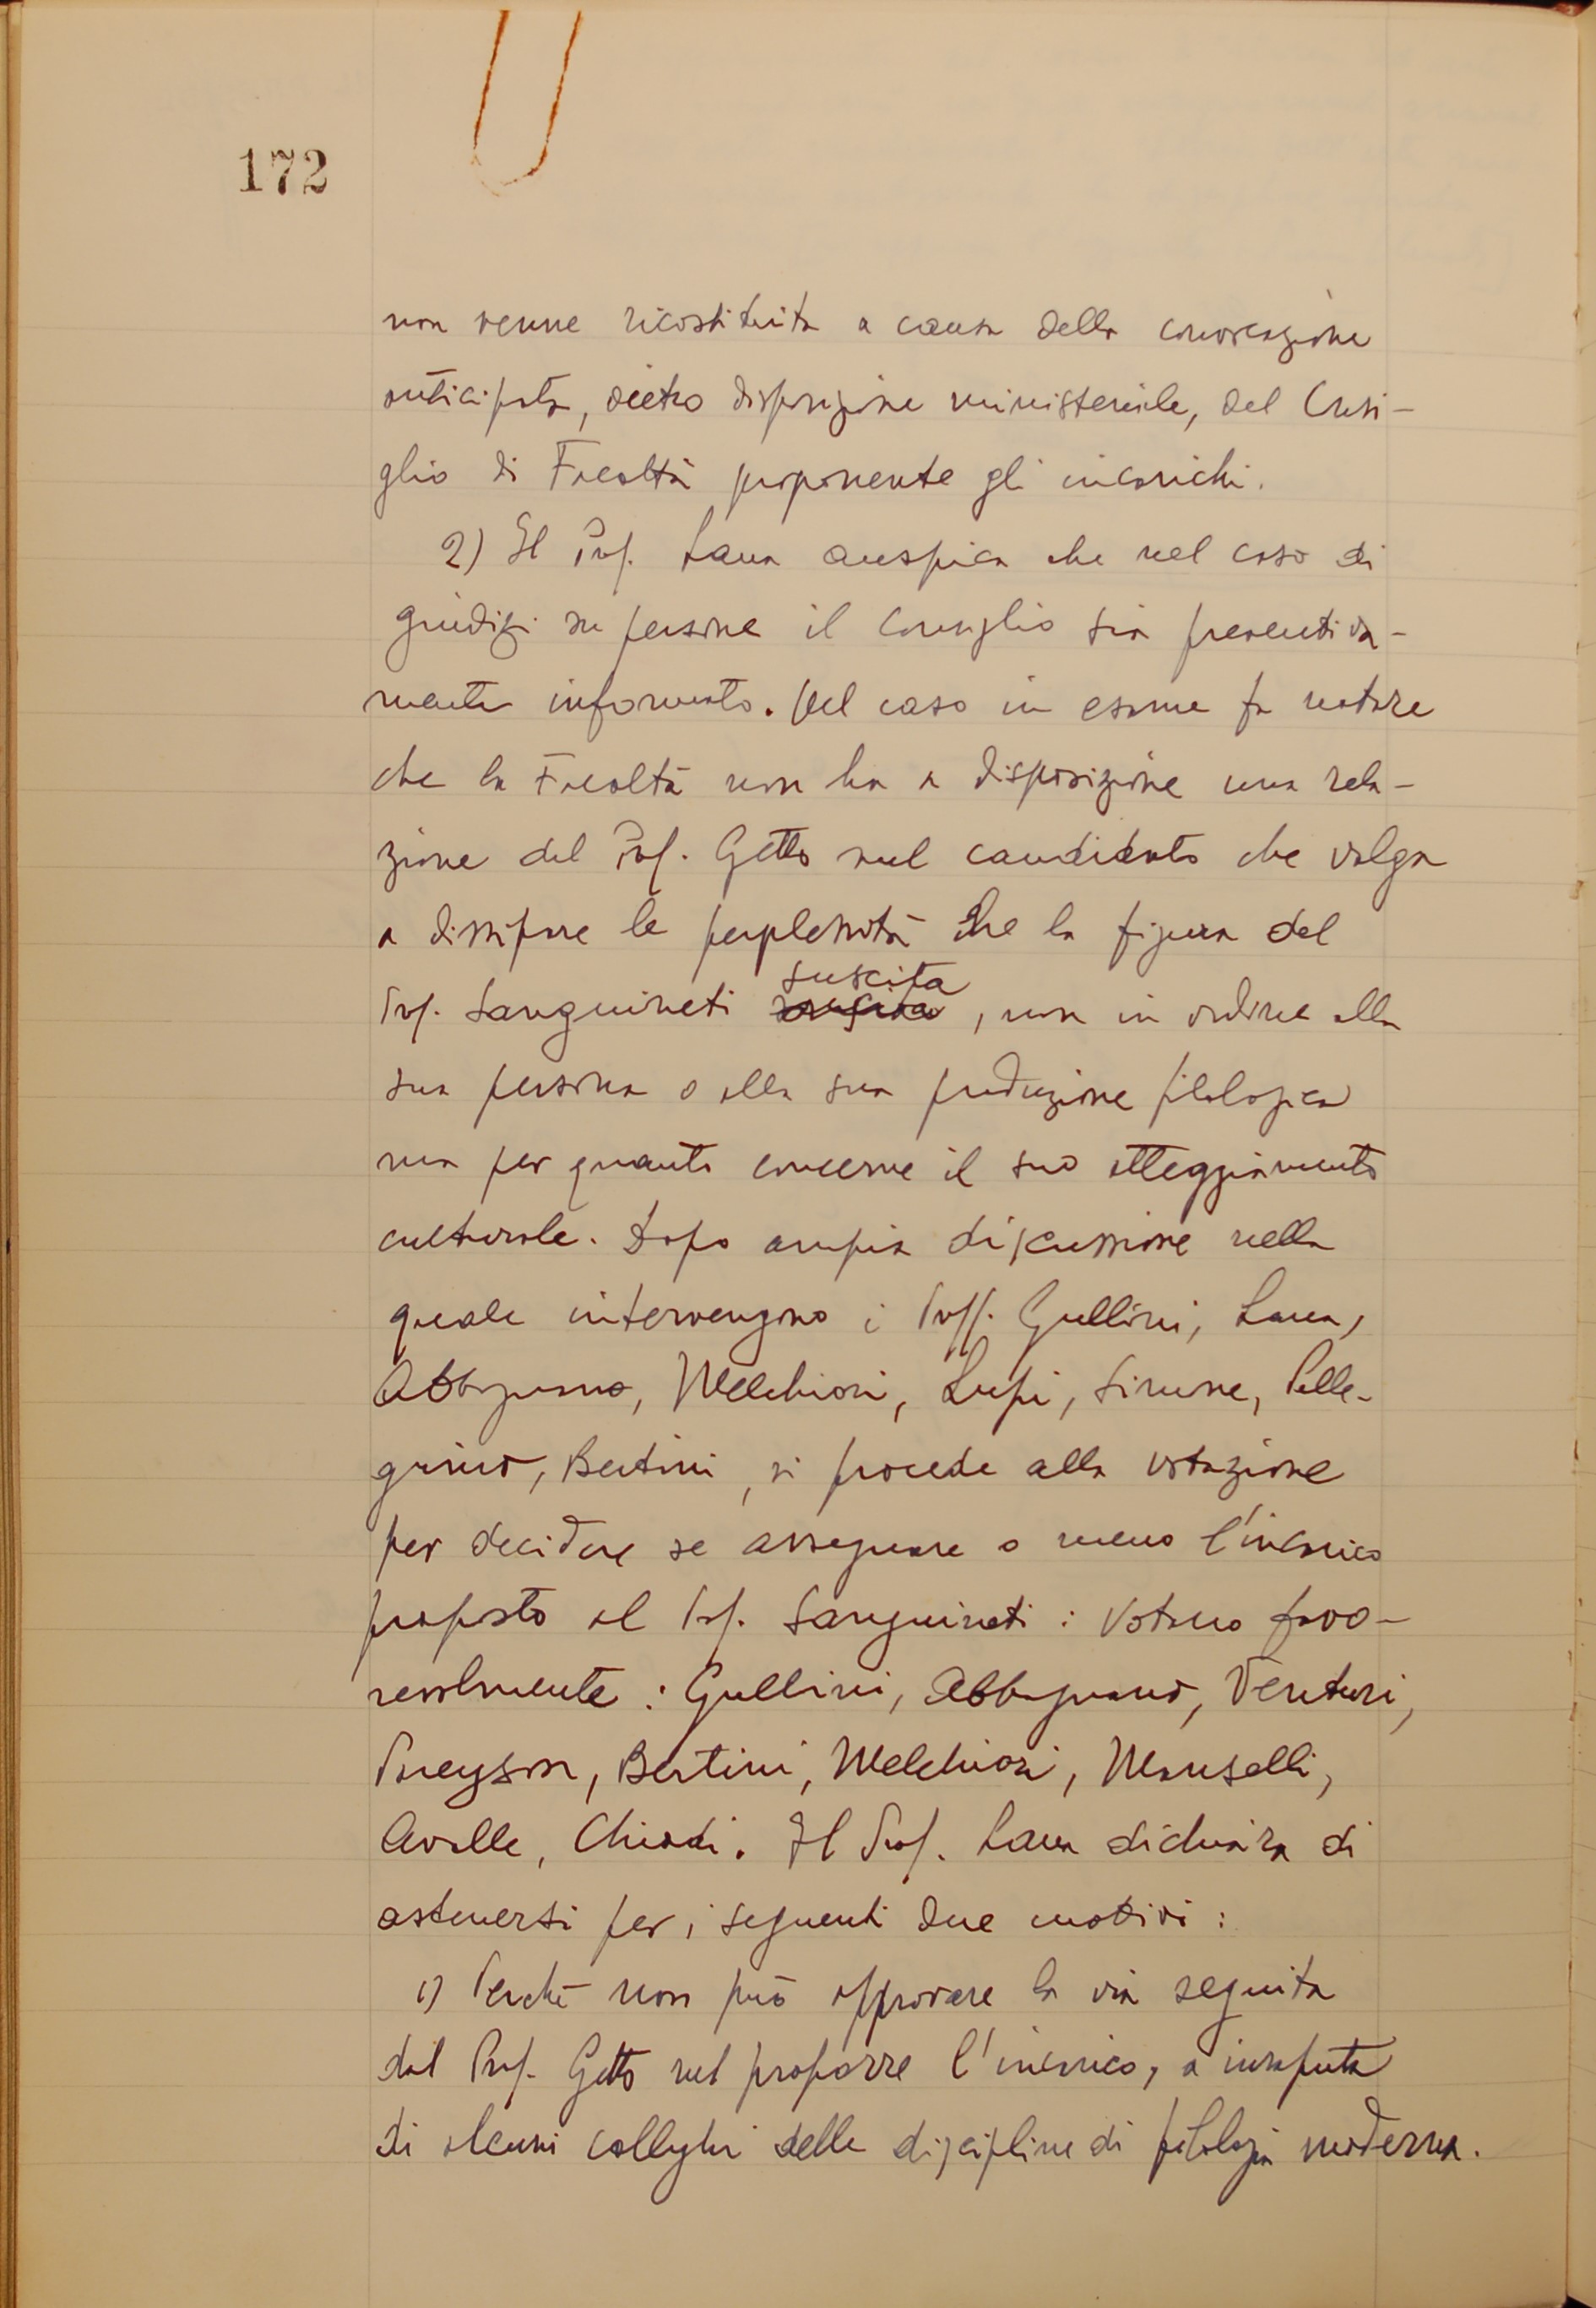 172
non venne ricostituita a causa della convocazione
anticipata, dietro disposizione ministeriale, del Consi-
glio di Facoltà proponente gli incarichi.
2) Il Prof. Lana auspica che nel caso di
giudizi su persone il Consiglio sia preventiva-
mente informato. Nel caso in esame fa notare
che la Facoltà non ha a disposizione una rela-
zione del Prof. Getto sul candidato che valga
a dissipare le perplessità che la figura del
suscita
Prof. Sanguineti , non in ordine alla
sua persona o alla sua produzione filologica
ma per quanto concerne il suo atteggiamento
culturale. Dopo ampia discussione nella
quale intervengono i Proff. Gullini, Lana,
Abbagnano, Melchiori, Lupi, Sirune, Pelle-
grino, Bertini, si procede alla votazione
per decidere se assegnare o meno l'incarico
proposto al Prof. Sanguineti : Votano favo-
revolmente : Gullini, Abbagnano, Venturi,
Pareyson, Bertini, Melchiori, Manselli,
Avalle, Chiodi. Il Prof. Lana dichiara di
astenersi per i seguenti due motivi :
1) Perchè non può approvare la via seguita
dal Prof. Getto nel proporre l'incarico, a insaputa
di alcuni colleghi delle discipline di filologia moderna.